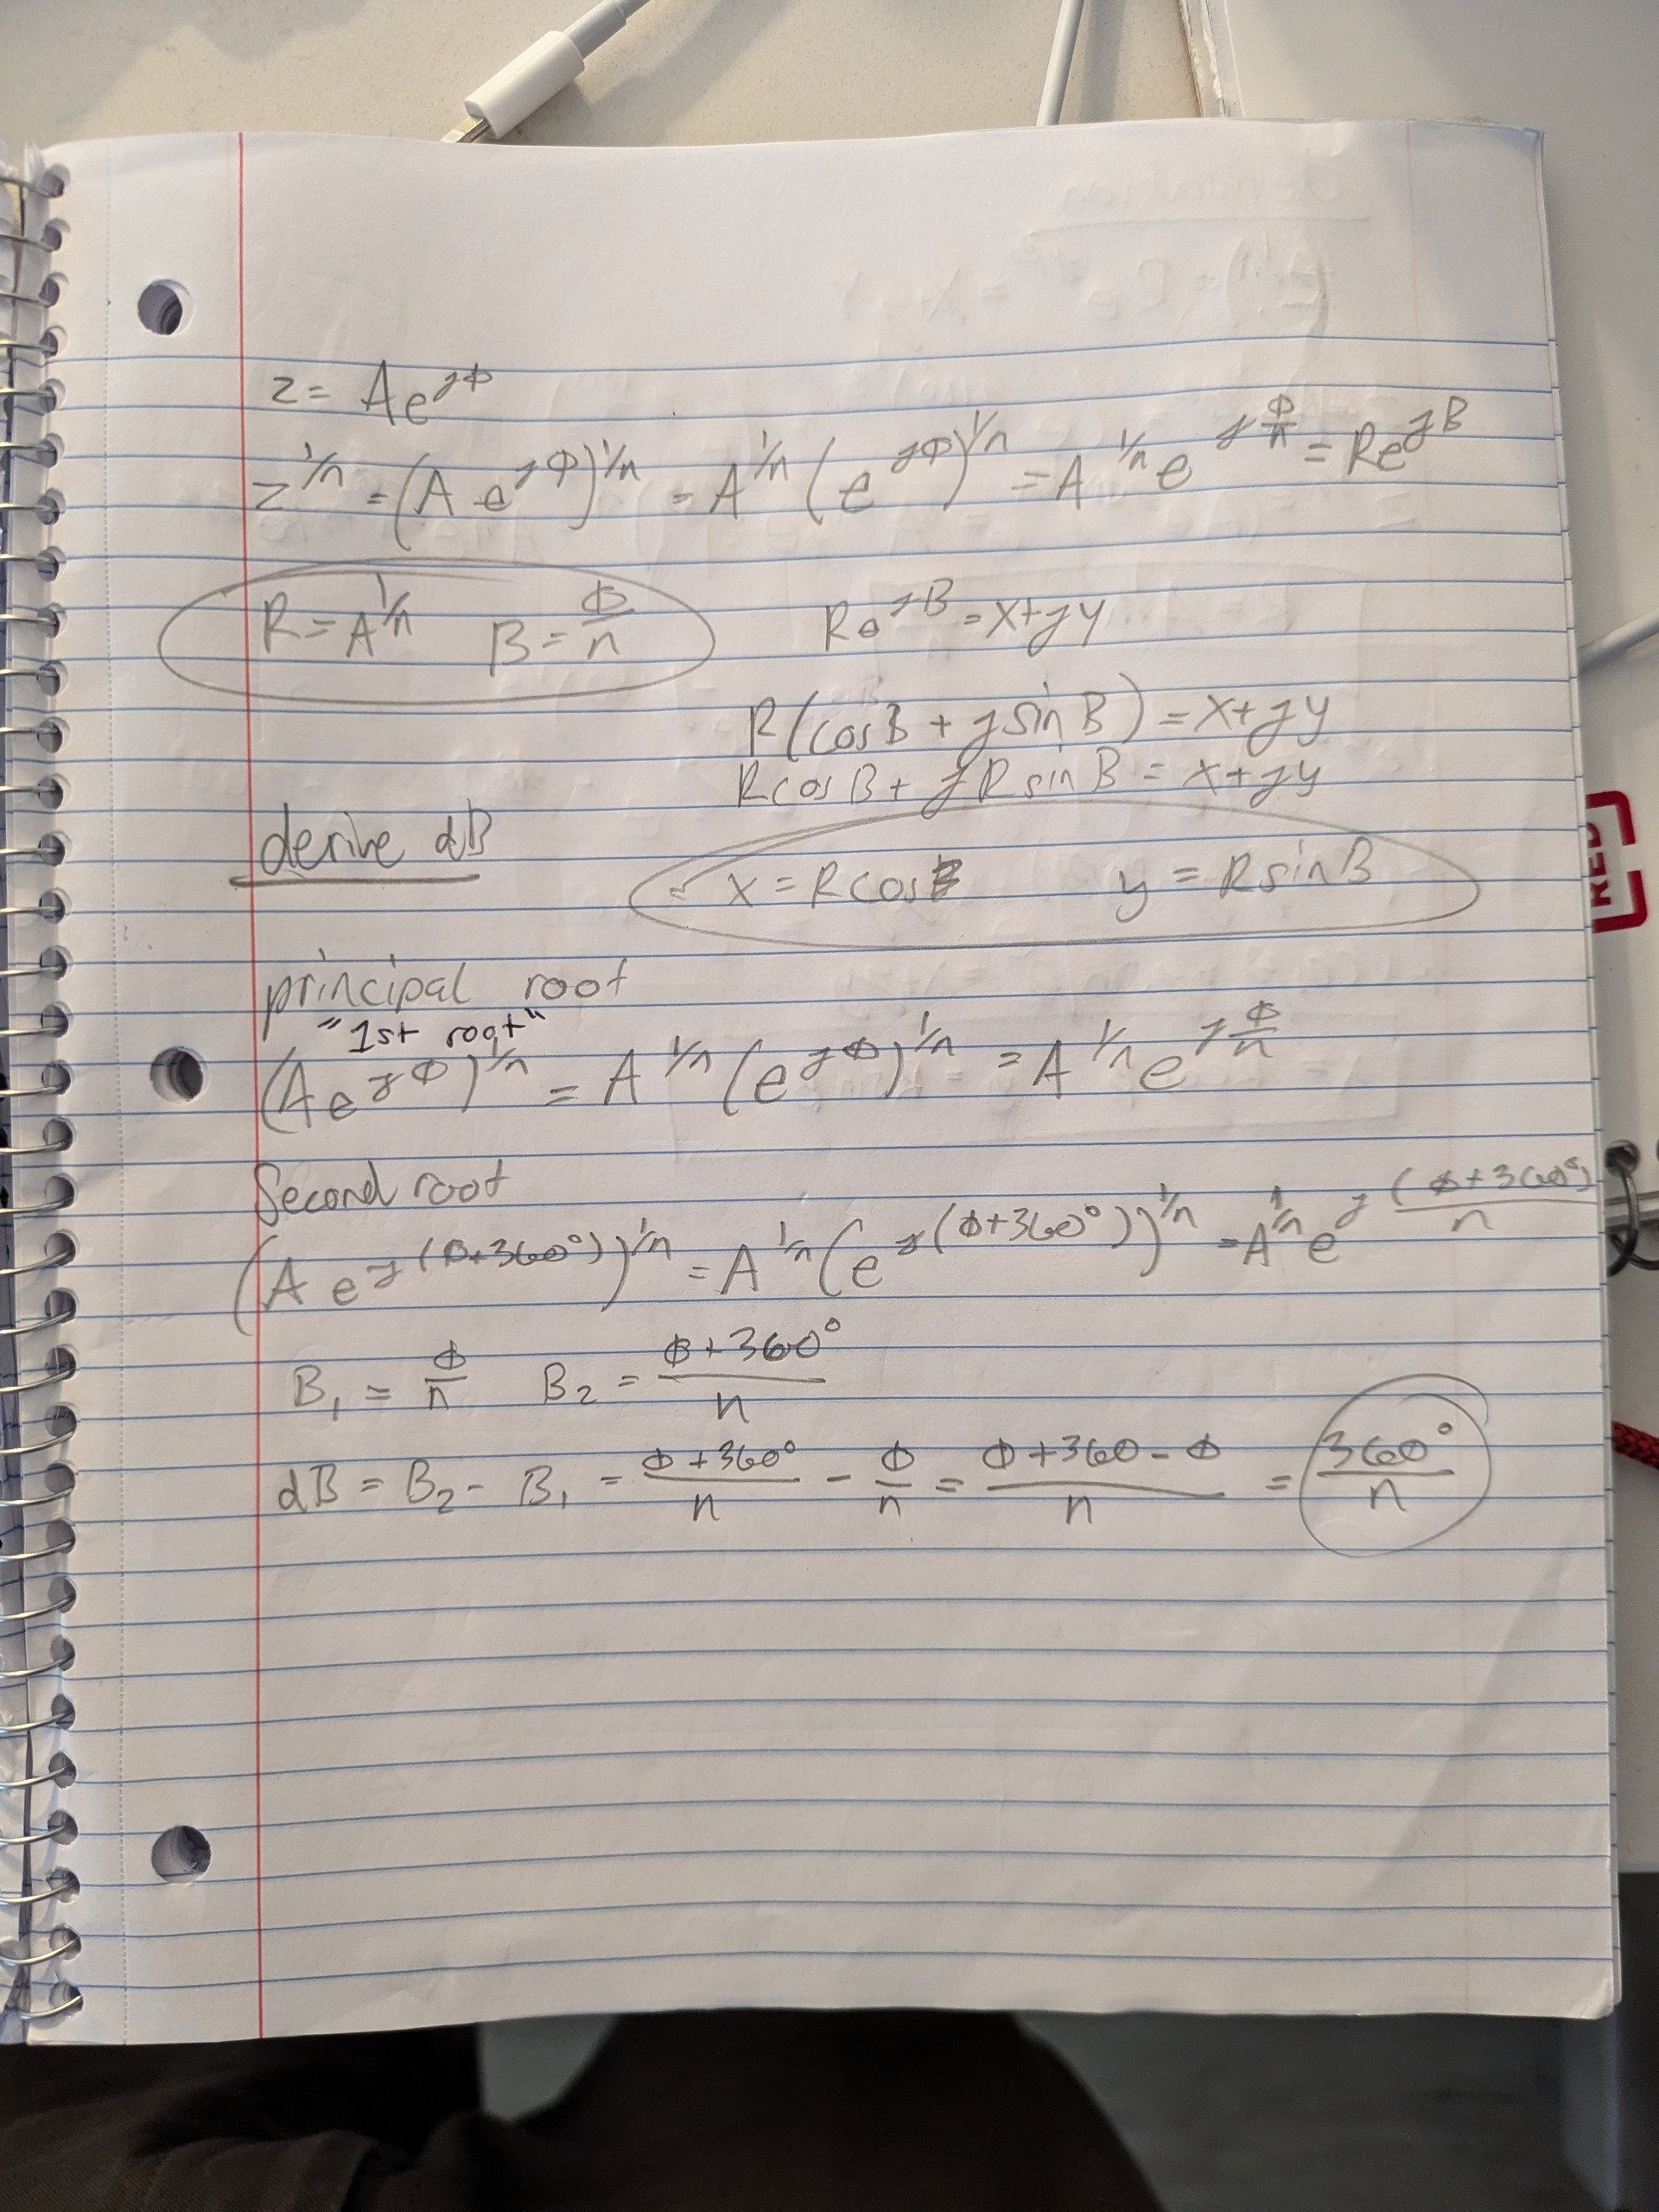 z = Ae^jΦ
z^1/n = (A e^jΦ)^1/n = A^1/n (e^jΦ)^1/n = A^1/n e^jΦ/n = Re^jB
R = A^1/n B = Φ/n
Re^jB = x+jy
R(cosB + jsinB) = x+jy
RcosB + jRsinB = x+jy
x = RcosB y = RsinB
derive dB
principal root
"1st root"
(Ae^jΦ)^1/n = A^1/n (e^jΦ)^1/n = A^1/n e^jΦ/n
Second root
(A e^j(Φ+360°))^1/n = A^1/n (e^j(Φ+360°))^1/n = A^1/n e^j(Φ+360°)/n
B₁ = Φ/n B₂ = Φ+360°/n
dB = B₂ - B₁ = Φ+360°/n - Φ/n = Φ+360-Φ/n = 360°/n